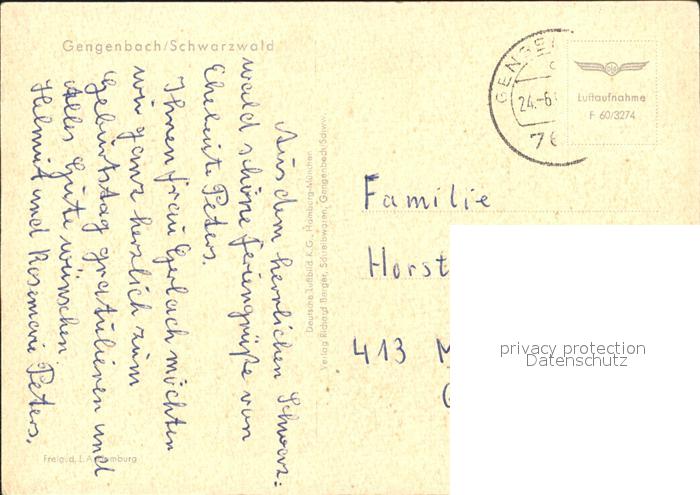 Gengenbach/Schwarzwald
Aus dem herrlichen Schwarz-
wald schöne Feriengrüße von
Eheleute Peters.
Ihnen Frau Gerlach möchten
wir ganz herzlich zum
Geburtstag gratulieren und
alles Gute wünschen.
Helmut und Rosemarie Peters.
Deutsche Luftbild K.G., Hamburg-München
Verlag Richard Berger, Schreibwaren, Gengenbach/Schw.
GENGE
24.-6.
76
Luftaufnahme
F 60/3274
Familie
Horst
413 M
G
privacy protection
Datenschutz